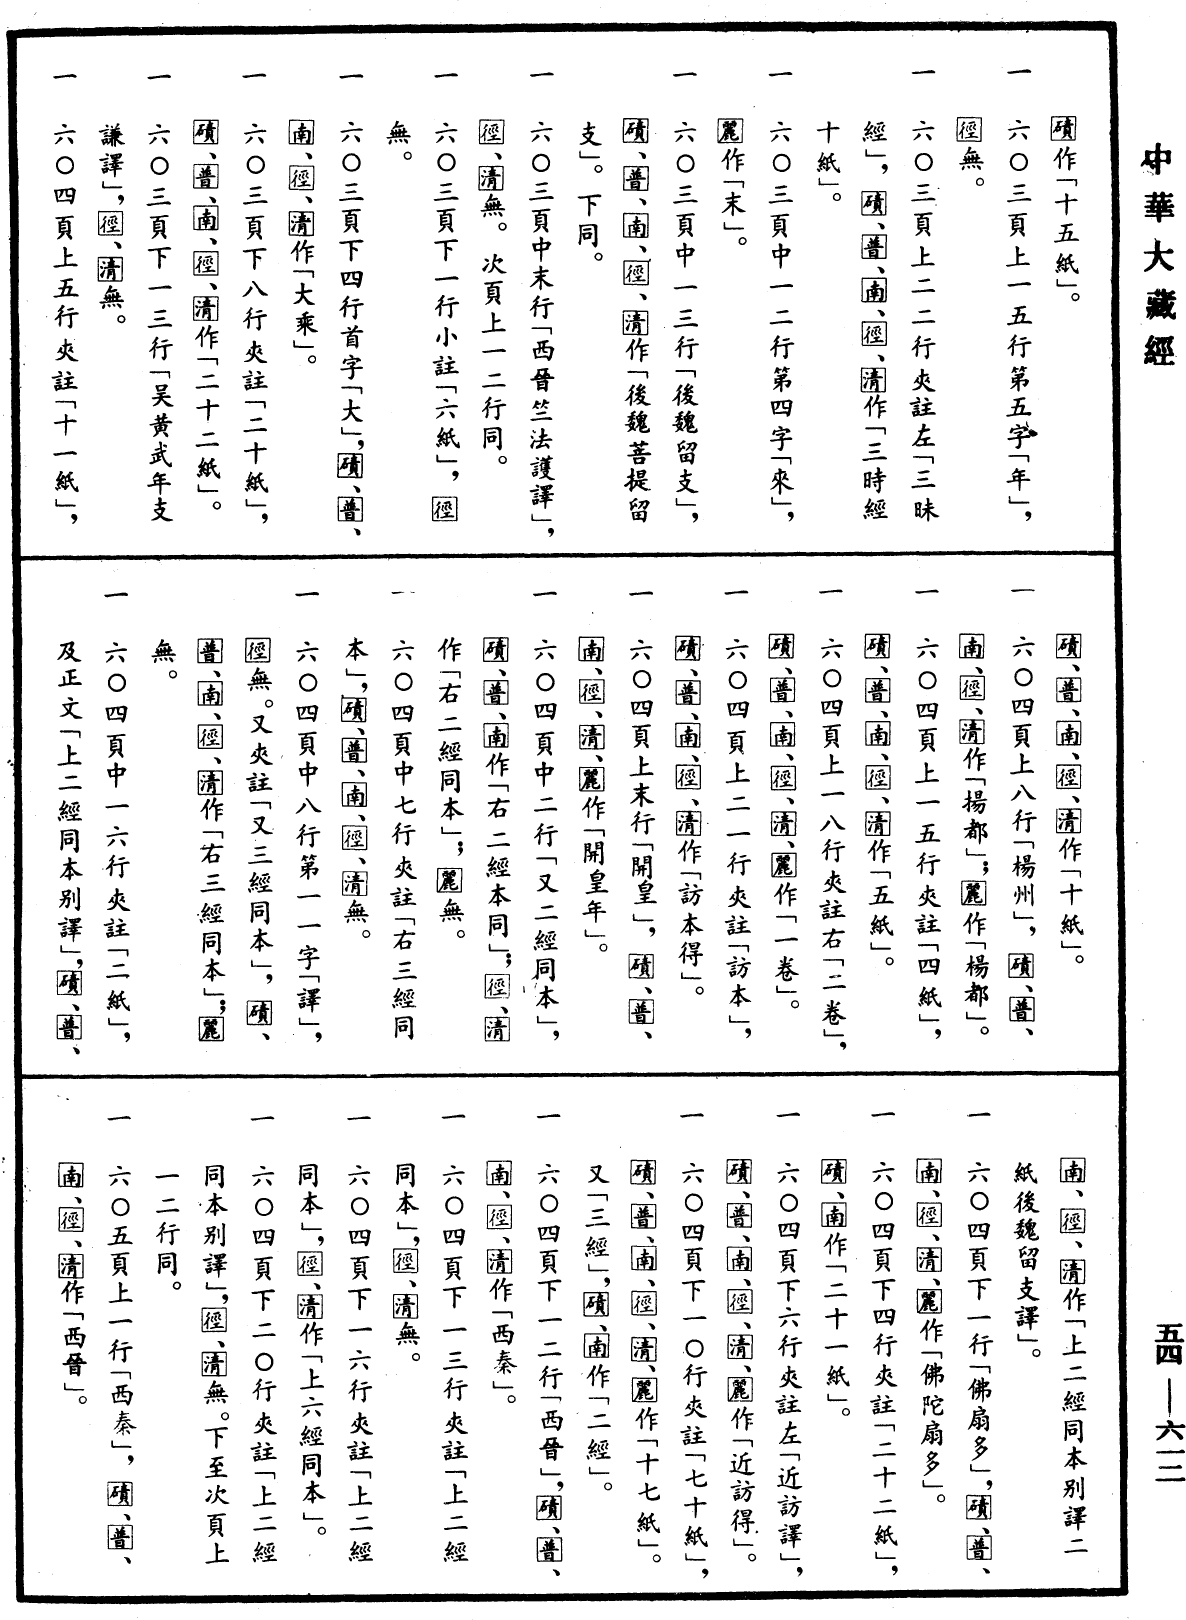 中華大藏經
磧作「十五紙」。
一　六〇三頁上一五行第五字「年」，
徑無。
一　六〇三頁上二二行夾註左「三昧
經」，磧、普、南、徑、清作「三時經
十紙」。
一　六〇三頁中一二行第四字「來」，
麗作「末」。
一　六〇三頁中一三行「後魏留支」，
磧、普、南、徑、清作「後魏菩提留
支」。下同。
一　六〇三頁中末行「西晉竺法護譯」，
徑、清無。次頁上一二行同。
一　六〇三頁下一行小註「六紙」，徑
無。
一　六〇三頁下四行首字「大」，磧、普、
南、徑、清作「大乘」。
一　六〇三頁下八行夾註「二十紙」，
磧、普、南、徑、清作「二十二紙」。
一　六〇三頁下一三行「吴黄武年支
謙譯」，徑、清無。
一　六〇四頁上五行夾註「十一紙」，
磧、普、南、徑、清作「十紙」。
一　六〇四頁上八行「楊州」，磧、普、
南、徑、清作「揚都」；麗作「楊都」。
一　六〇四頁上一五行夾註「四紙」，
磧、普、南、徑、清作「五紙」。
一　六〇四頁上一八行夾註右「二卷」，
磧、普、南、徑、清、麗作「一卷」。
一　六〇四頁上二一行夾註「訪本」，
磧、普、南、徑、清作「訪本得」。
一　六〇四頁上末行「開皇」，磧、普、
南、徑、清、麗作「開皇年」。
一　六〇四頁中二行「又二經同本」，
磧、普、南作「右二經本同」；徑、清
作「右二經同本」；麗無。
一　六〇四頁中七行夾註「右三經同
本」，磧、普、南、徑、清無。
一　六〇四頁中八行第一一字「譯」，
徑無。又夾註「又三經同本」，磧、
普、南、徑、清作「右三經同本」；麗
無。
一　六〇四頁中一六行夾註「二紙」，
及正文「上二經同本别譯」，磧、普、
南、徑、清作「上二經同本别譯二
紙後魏留支譯」。
一　六〇四頁下一行「佛扇多」，磧、普、
南、徑、清、麗作「佛陀扇多」。
一　六〇四頁下四行夾註「二十二紙」，
磧、南作「二十一紙」。
一　六〇四頁下六行夾註左「近訪譯」，
磧、普、南、徑、清、麗作「近訪得」。
一　六〇四頁下一〇行夾註「七十紙」，
磧、普、南、徑、清、麗作「十七紙」。
又「三經」，磧、南作「二經」。
一　六〇四頁下一二行「西晉」，磧、普、
南、徑、清作「西秦」。
一　六〇四頁下一三行夾註「上二經
同本」，徑、清無。
一　六〇四頁下一六行夾註「上二經
同本」，徑、清作「上六經同本」。
一　六〇四頁下二〇行夾註「上二經
同本别譯」，徑、清無。下至次頁上
一二行同。
一　六〇五頁上一行「西秦」，磧、普、
南、徑、清作「西晉」。
五四—六一二